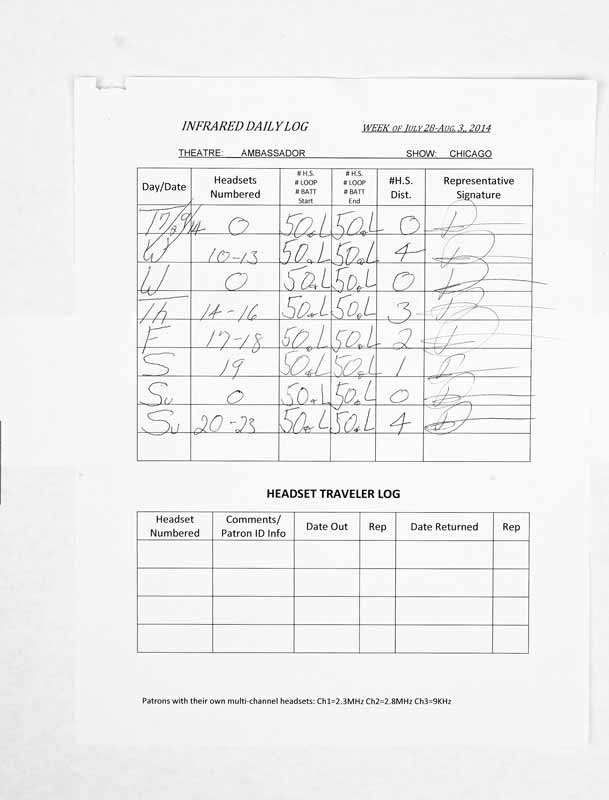 INFRARED DAILY LOG WEEK OF JULY 28-AUG. 3, 2014
THEATRE: AMBASSADOR SHOW: CHICAGO
Day/Date Headsets Numbered # H.S. # LOOP # BATT Start # H.S. # LOOP # BATT End #H.S. Dist. Representative Signature
T 0 50 L 50 L 0
W 10-13 50 L 50 L 4
W 0 50 L 50 L 0
Th 14-16 50 L 50 L 3
F 17-18 50 L 50 L 2
S 19 50 L 50 L 1
Su 0 50 L 50 L 0
Su 20-23 50 L 50 L 4
HEADSET TRAVELER LOG
Headset Numbered Comments/ Patron ID Info Date Out Rep Date Returned Rep
Patrons with their own multi-channel headsets: Ch1=2.3MHz Ch2=2.8MHz Ch3=9KHz